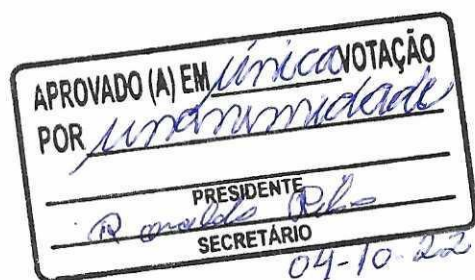 APROVADO (A) EM única VOTAÇÃO
POR unanimidade
PRESIDENTE
Ronaldo
SECRETÁRIO
04-10-22